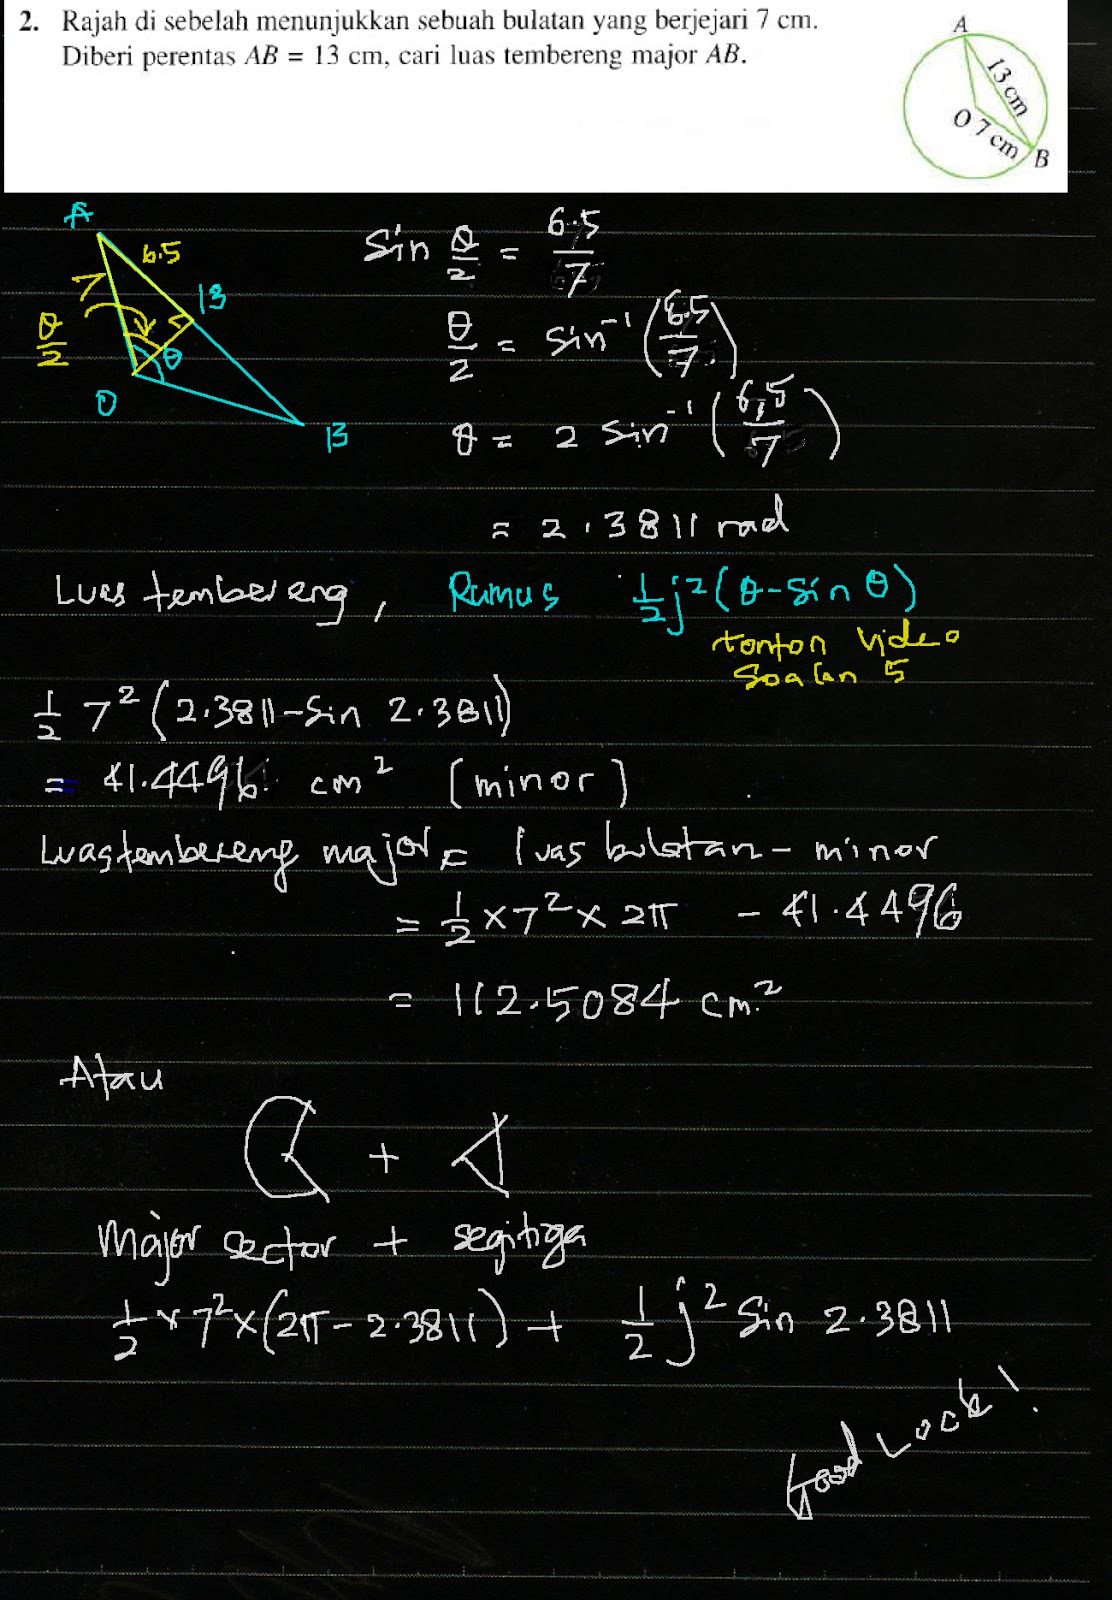 2. Rajah di sebelah menunjukkan sebuah bulatan yang berjejari 7 cm.
Diberi perentas AB = 13 cm, cari luas tembereng major AB.
A
13 cm
O 7 cm B
A
6.5
7
13
θ/2
θ
O
B
Sin θ/2 = 6.5/7
θ/2 = Sin⁻¹(6.5/7)
θ = 2 Sin⁻¹(6.5/7)
= 2.3811 rad
Luas tembereng, Rumus ½j²(θ-Sin θ)
tonton video
Soalan 5
½ 7²(2.3811-Sin 2.3811)
= 41.4496 cm² (minor)
Luas tembereng major = luas bulatan - minor
= ½ x 7² x 2π - 41.4496
= 112.5084 cm²
Atau
+
Major sector + segitiga
½ x 7² x (2π - 2.3811) + ½ j² Sin 2.3811
Good Lock!